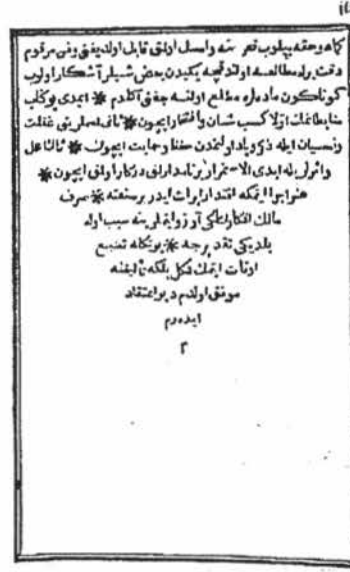 كماهو حقه بيلوب قعرينه واصل اولمق قابل اولديغنى وفن مرقوم
دقت ايله مطالعه اولندقچه يكيدن بعض شيلر آشكار اولوب
كوناكون ماده لره مطلع اولنه جغنى آكلادم ❋ ايمدى بوكتاب
اولا كسب شان وافتخار ايچون ❋ ثانى غفلت
ونسيان ايله ذكر وياد اولنمدن حفظ وحمايت ايچون ❋ ثالثا عمل
واثرلرله ابدى الاستمرار برنامدار اولمق دركار اولمق ايچون ❋
هنر اجرا ايتمكه اقتدار ايراث ايدر بر صنعته ❋ صرف
مالك افكار آرزولرينه سبب اوله
بلديكى تقديرجه ❋ بونكله تضييع
اوقات ايتمك دكل بلكه تأليفنه
موفق اولدم ديو اعتقاد
ايدرم
٢